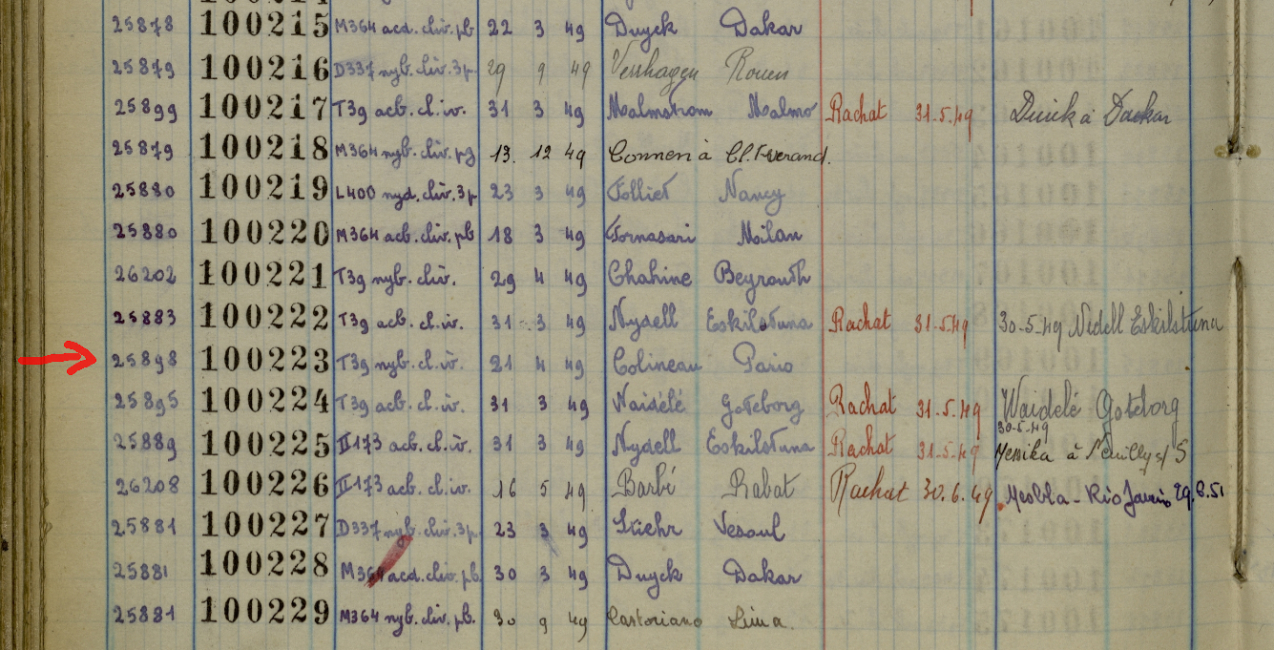 25878 100215 M364 acd. cliv. pb 22 3 49 Duyck Dakar
25879 100216 D337 nyb. cliv. 3p 29 9 49 Verhagen Rouen
25899 100217 T39 acb. cl. iv. 31 3 49 Malmstrom Malmo Rachat 31.5.49 Duick à Dackar
25879 100218 M364 nyb. cliv. 13. 12 49 Connen à
25880 100219 L400 nyd. cliv. 3p 23 3 49 Folliet Nancy
25880 100220 M364 acb. cliv. pb 18 3 49 Fornasari Milan
26202 100221 T39 nyb. cliv. 29 4 49 Chahine Beyrouth
25883 100222 T39 acb. cl. iv. 31 3 49 Nydell Eskilstuna Rachat 31.5.49 30-5-49 Nidell Eskilstuna
25898 100223 T39 nyb. cl. iv. 21 4 49 Colineau Paris
25895 100224 T39 acb. cl. iv. 31 3 49 Waidélé Goteborg Rachat 31.5.49 Waidelé Goteborg
30-5-49
25889 100225 II173 acb. cl. iv. 31 3 49 Nydell Eskilstuna Rachat 31.5.49 à Neuilly s/ S
26208 100226 II173 acb. cl. iv. 16 5 49 Barbé Rabat Rachat 30.6.49 Mesbla - Rio Janeiro 29.8.51
25881 100227 D337 nyb. cliv. 3p 23 3 49 Stiehr Vesoul
25881 100228 M364 acd. cliv. pb. 30 3 49 Duyck Dakar
25881 100229 M364 nyb. cliv. pb. 30 9 49 Castoriano Lima.